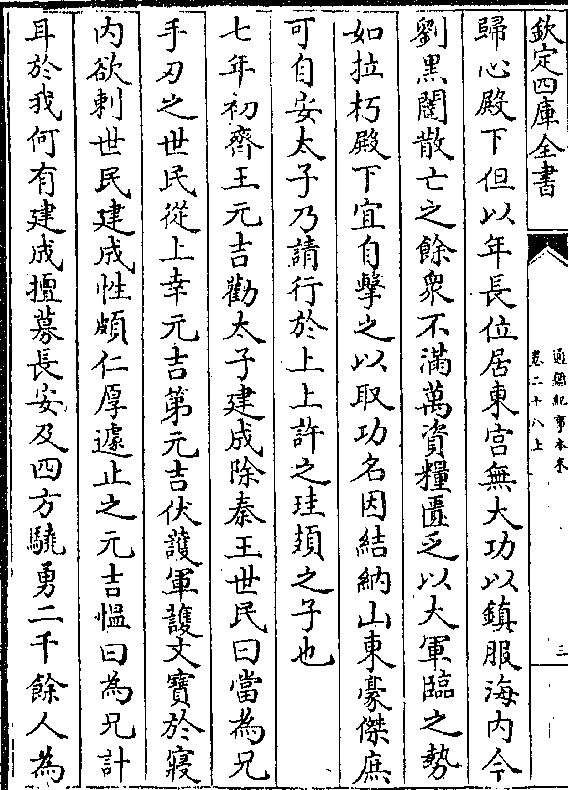 欽定四庫全書
通鑑紀事本末
卷二十八上
三
歸心殿下但以年長位居東宮無大功以鎮服海内今
劉黑闥散亡之餘衆不滿萬資糧匱乏以大軍臨之勢
如拉朽殿下宜自擊之以取功名因結納山東豪傑庶
可自安太子乃請行於上上許之珪頍之子也
七年初齊王元吉勸太子建成除秦王世民曰當為兄
手刃之世民從上幸元吉第元吉伏護軍䕶丈寳於寢
内欲刺世民建成性頗仁厚遽止之元吉愠曰為兄計
耳於我何有建成擅募長安及四方驍勇二千餘人為